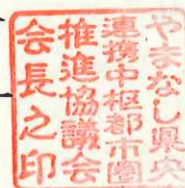 やまなし県央
連携中枢都市圏
推進協議会
会長之印